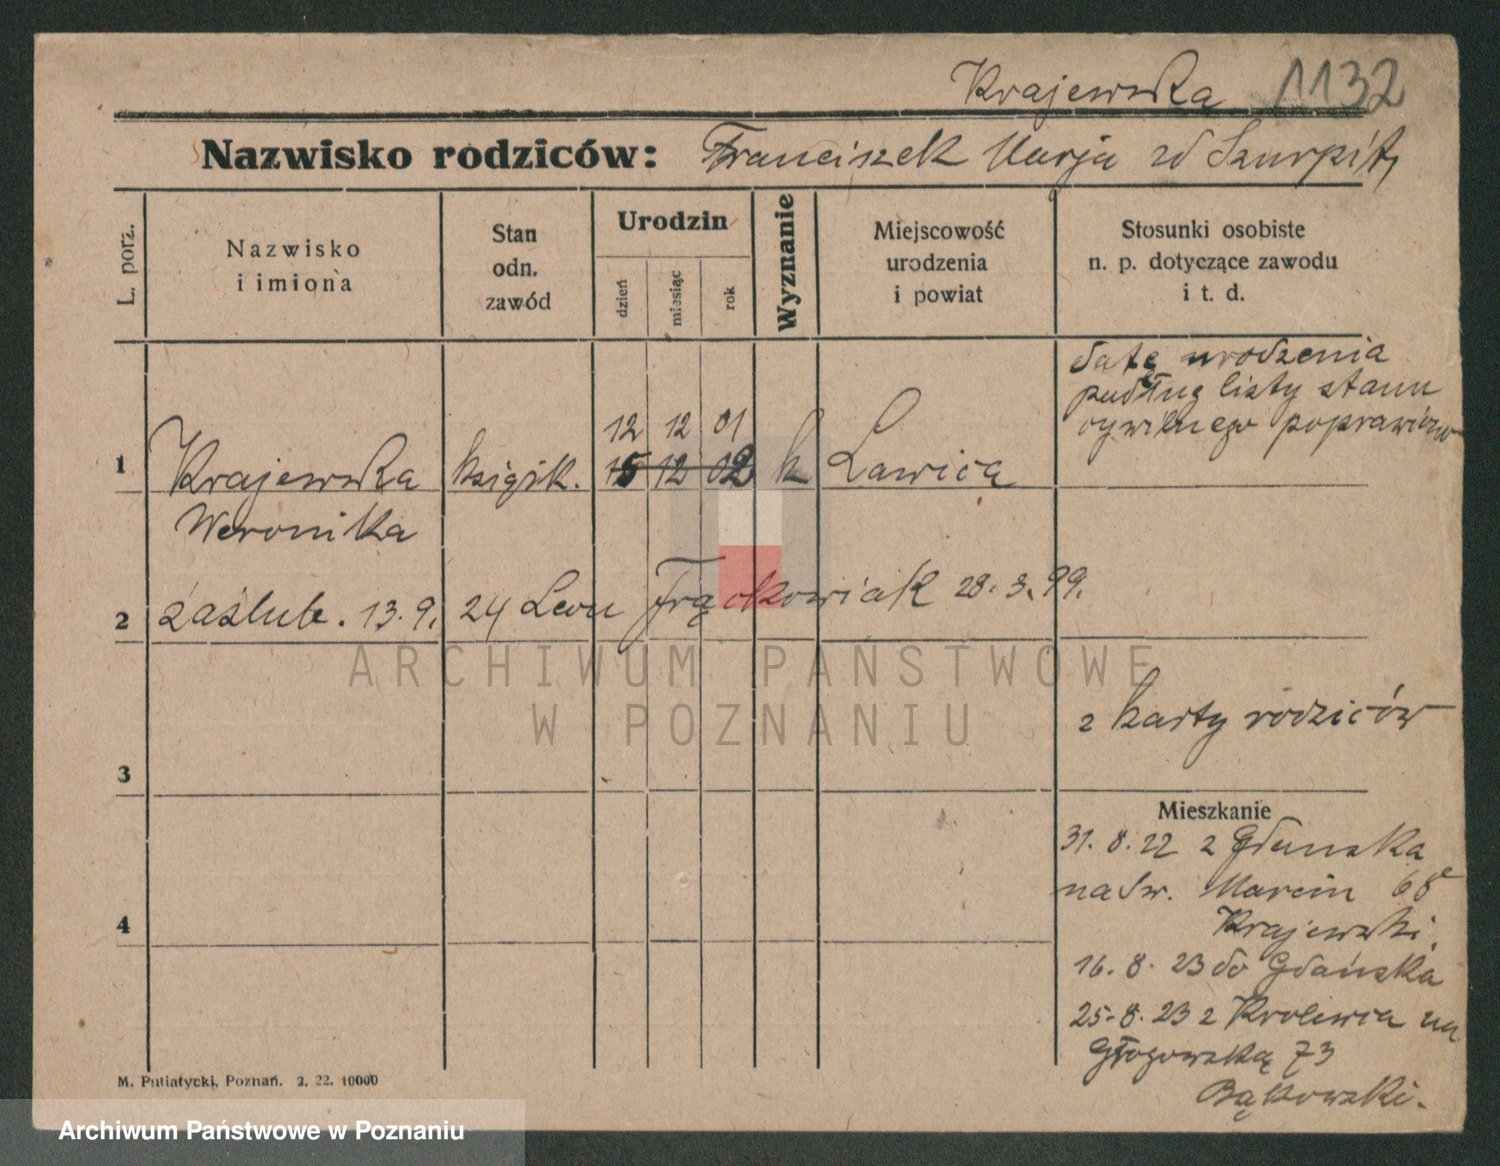 Krajewska 1132
Nazwisko rodziców: Franciszek Marja zd Szurpit
L. porz.
Nazwisko
i imiona
Stan
odn.
zawód
Urodzin
dzień
miesiąc
rok
Wyznanie
Miejscowość
urodzenia
i powiat
Stosunki osobiste
n. p. dotyczące zawodu
i t. d.
datę urodzenia
podług listy stanu
cywilnego poprawiono
12 12 01
1 Krajewska książk. 15 12 02 k Ławica
Weronika
2 zaślub. 13.9. 24 Leon Frąckowiak 28.3.99.
z karty rodziców
3
Mieszkanie
31.8.22 z Gdańska
na Św. Marcin 68
Krajewski.
4
16.8.23 do Gdańska
25.8.23 z Krolewca na
Głogowską 73
Bąkowski.
M. Putiatycki, Poznań. 2. 22. 10000
ARCHIWUM PAŃSTWOWE
W POZNANIU
Archiwum Państwowe w Poznaniu